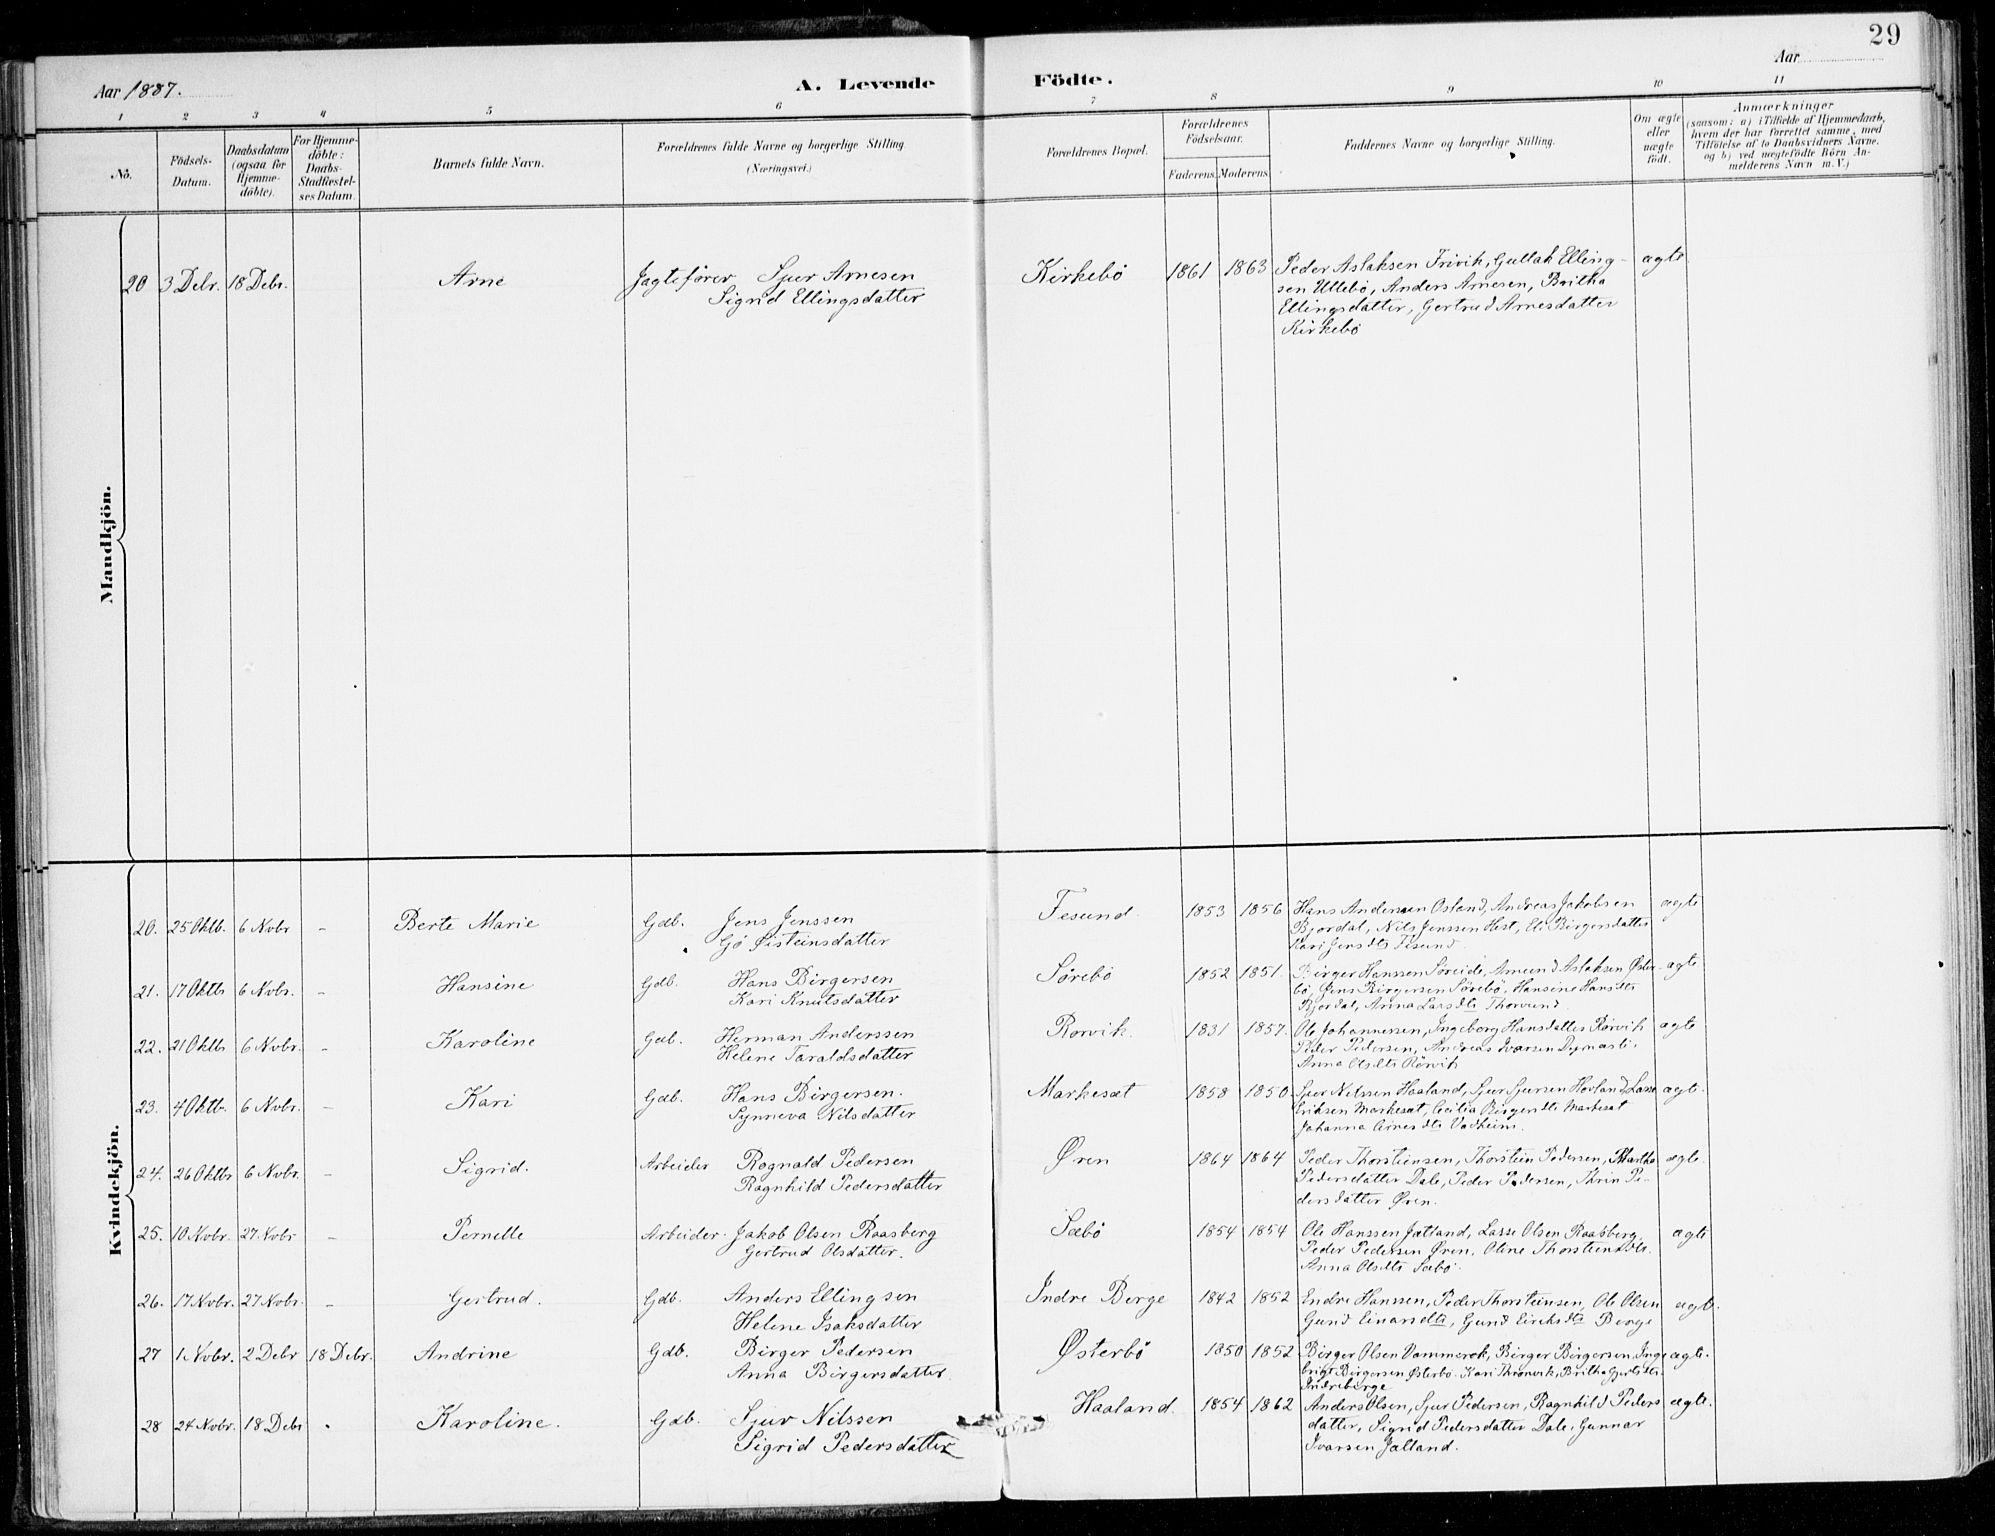 29
Aar 1887.
A. Levende Födte.
Aar
1 2 3 4 5 6 7 8 9 10 11
No.
Födsels-Datum.
Daabsdatum (ogsaa for Hjemme-döbte).
For Hjemme-döbte: Daabs-Stadfæstel-ses Datum.
Barnets fulde Navn.
Forældrenes fulde Navne og borgerlige Stilling (Næringsvei.)
Forældrenes Bopæl.
Forældrenes Födselsaar.
Faderens. Moderens.
Faddernes Navne og borgerlige Stilling.
Om ægte eller uægte födt.
Anmærkninger
(saasom: a) i Tilfælde af Hjemmedaab,
hvem der har forrettet samme, med
Tilföielse af to Daabsvidners Navne.
og b) ved uægtefödte Börn An-
melderens Navn m. V.)
Mandkjön.
20 3 Debr. 18 Debr. Arne Jagtefører Sjur Arnesen Kirkebö 1861 1863 Peder Aslaksen Trivik, Gullak Elling- ægte
Sigrid Ellingsdatter sen Uttebö, Anders Arnesen, Britha
Ellingsdatter, Gertrud Arnesdatter
Kirkebö
Kvindekjön.
20. 25 Oktb. 6 Novbr - Berte Marie Gdb. Jens Jenssen Tesund. 1853 1856 Hans Andersen Osland, Andreas Jakobsen ægte
Gjö Øisteinsdatter Bjordal, Nils Jenssen Hest, Eli Birgersdatter
Kari Jensdtr Tesund.
21. 17 Oktbr 6 Nvbr. - Hansine Gdb. Hans Birgersen Sørebö 1852 1851. Birger Hanssen Søreide, Amund Aslaksen Øster- ægte
Kari Knutsdatter bö, Jens Birgersen Sørebö, Hansine Hansdtr
Bjordal, Anna Larsdtr
22. 21 Oktbr 6 Nvbr. - Karoline Gdb. Herman Anderssen Rørvik. 1831 1857. Ole Johannessen, Ingeborg Hansdatter Rørvik ægte
Helene Taraldsdatter Peder Pedersen, Andreas Ivarsen
Anna Olsdtr Rørvik
23. 4 Oktb. 6 Nvbr. - Kari Gdb. Hans Birgersen. Markesæt 1858 1850. Sjur Nilssen Haaland, Sjur Sjursen Hovland, Lasse ægte.
Synneva Nilsdatter Eriksen Markesæt, Cecilia Birgersdtr Markesæt
Johanna Arnesdtr Vadheim.
24. 26 Oktbr 6 Nvbr. - Sigrid. Arbeider Rognald Pedersen Øren 1864 1864 Peder Thorsteinsen, Thorstein Pedersen, Martha ægte.
Ragnhild Pedersdatter Pedersdatter Dale, Peder Pedersen, Thrin Pe-
dersdatter Øren.
25. 10 Nvbr. 27. Nvbr - Pernelle Arbeider. Jakob Olsen Raasberg Sæbö 1854 1854 Ole Hanssen Jatland, Lasse Olsen Raasberg, ægte
Gertrud Olsdatter. Peder Pedersen Øren, Oline Thorsteinsdtr.
Anna Olsdtr Sæbö.
26. 17 Nvbr. 27 Nvbr. - Gertrud. Gdb. Anders Ellingsen Indre Berge 1842 1852 Endre Hanssen, Peder Thorsteinsen, Ole Olsen ægte.
Helene Isaksdatter Guri Einarsdtr, Guri Eiriksdtr Berge
27 1. Nvbr. 2 Debr 18 Debr. Andrine Gdb. Birger Pedersen Østerbö 1850 1852 Birger Olsen Vammerok, Birger Birgersen, Inge- ægte.
Anna Birgersdatter. brigt Birgersen Østerbö. Kari Thronvik, Britha Gjertsdtr
Indreberge
28 24 Nvbr. 18 Debr - Karoline. Gdb. Sjur Nilssen Haaland. 1854 1862 Anders Olsen, Sjur Pedersen, Ragnhild Peders- ægte.
Sigrid Pedersdatter datter, Sigrid Pedersdatter Dale, Gunnar
Ivarsen Jatland.